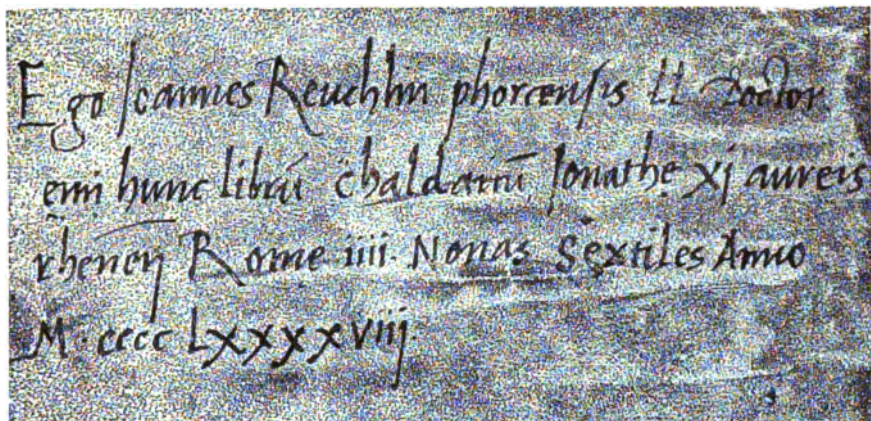 Ego Joannes Reuchlin phorcensis LL Doctor
emi hunc librũ chaldaicũ Jonathe xj aureis
rheneñ Rome iiii. Nonas Sextiles Anno
M. cccc Lxxxxviij.